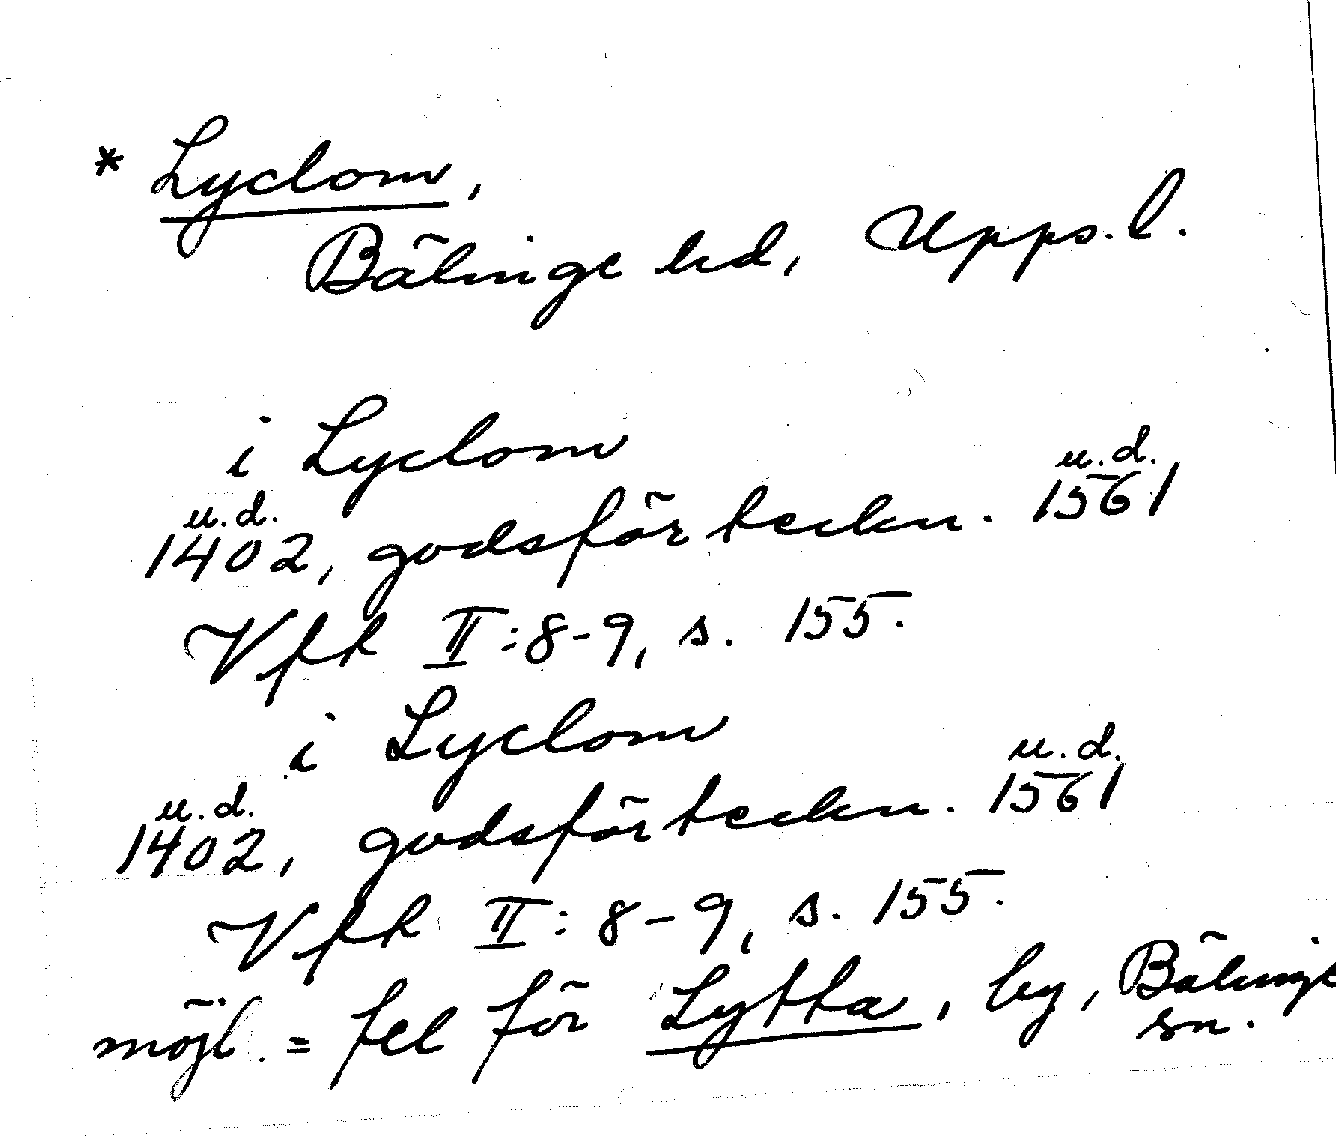 * Lyclom,
Bälinge hd, Upps. l.
i Lyclom
u.d. u.d.
1402, godsförteckn. 1561
Vfk II:8-9, s. 155.
i Lyclom
u.d. u.d.
1402, godsförteckn. 1561
Vfk II:8-9, s. 155.
möjl. = fel för Lytta, by, Bälinge
sn.